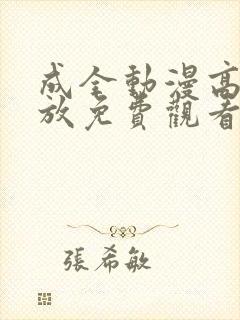 成全動漫高
放免費觀看
張希敏